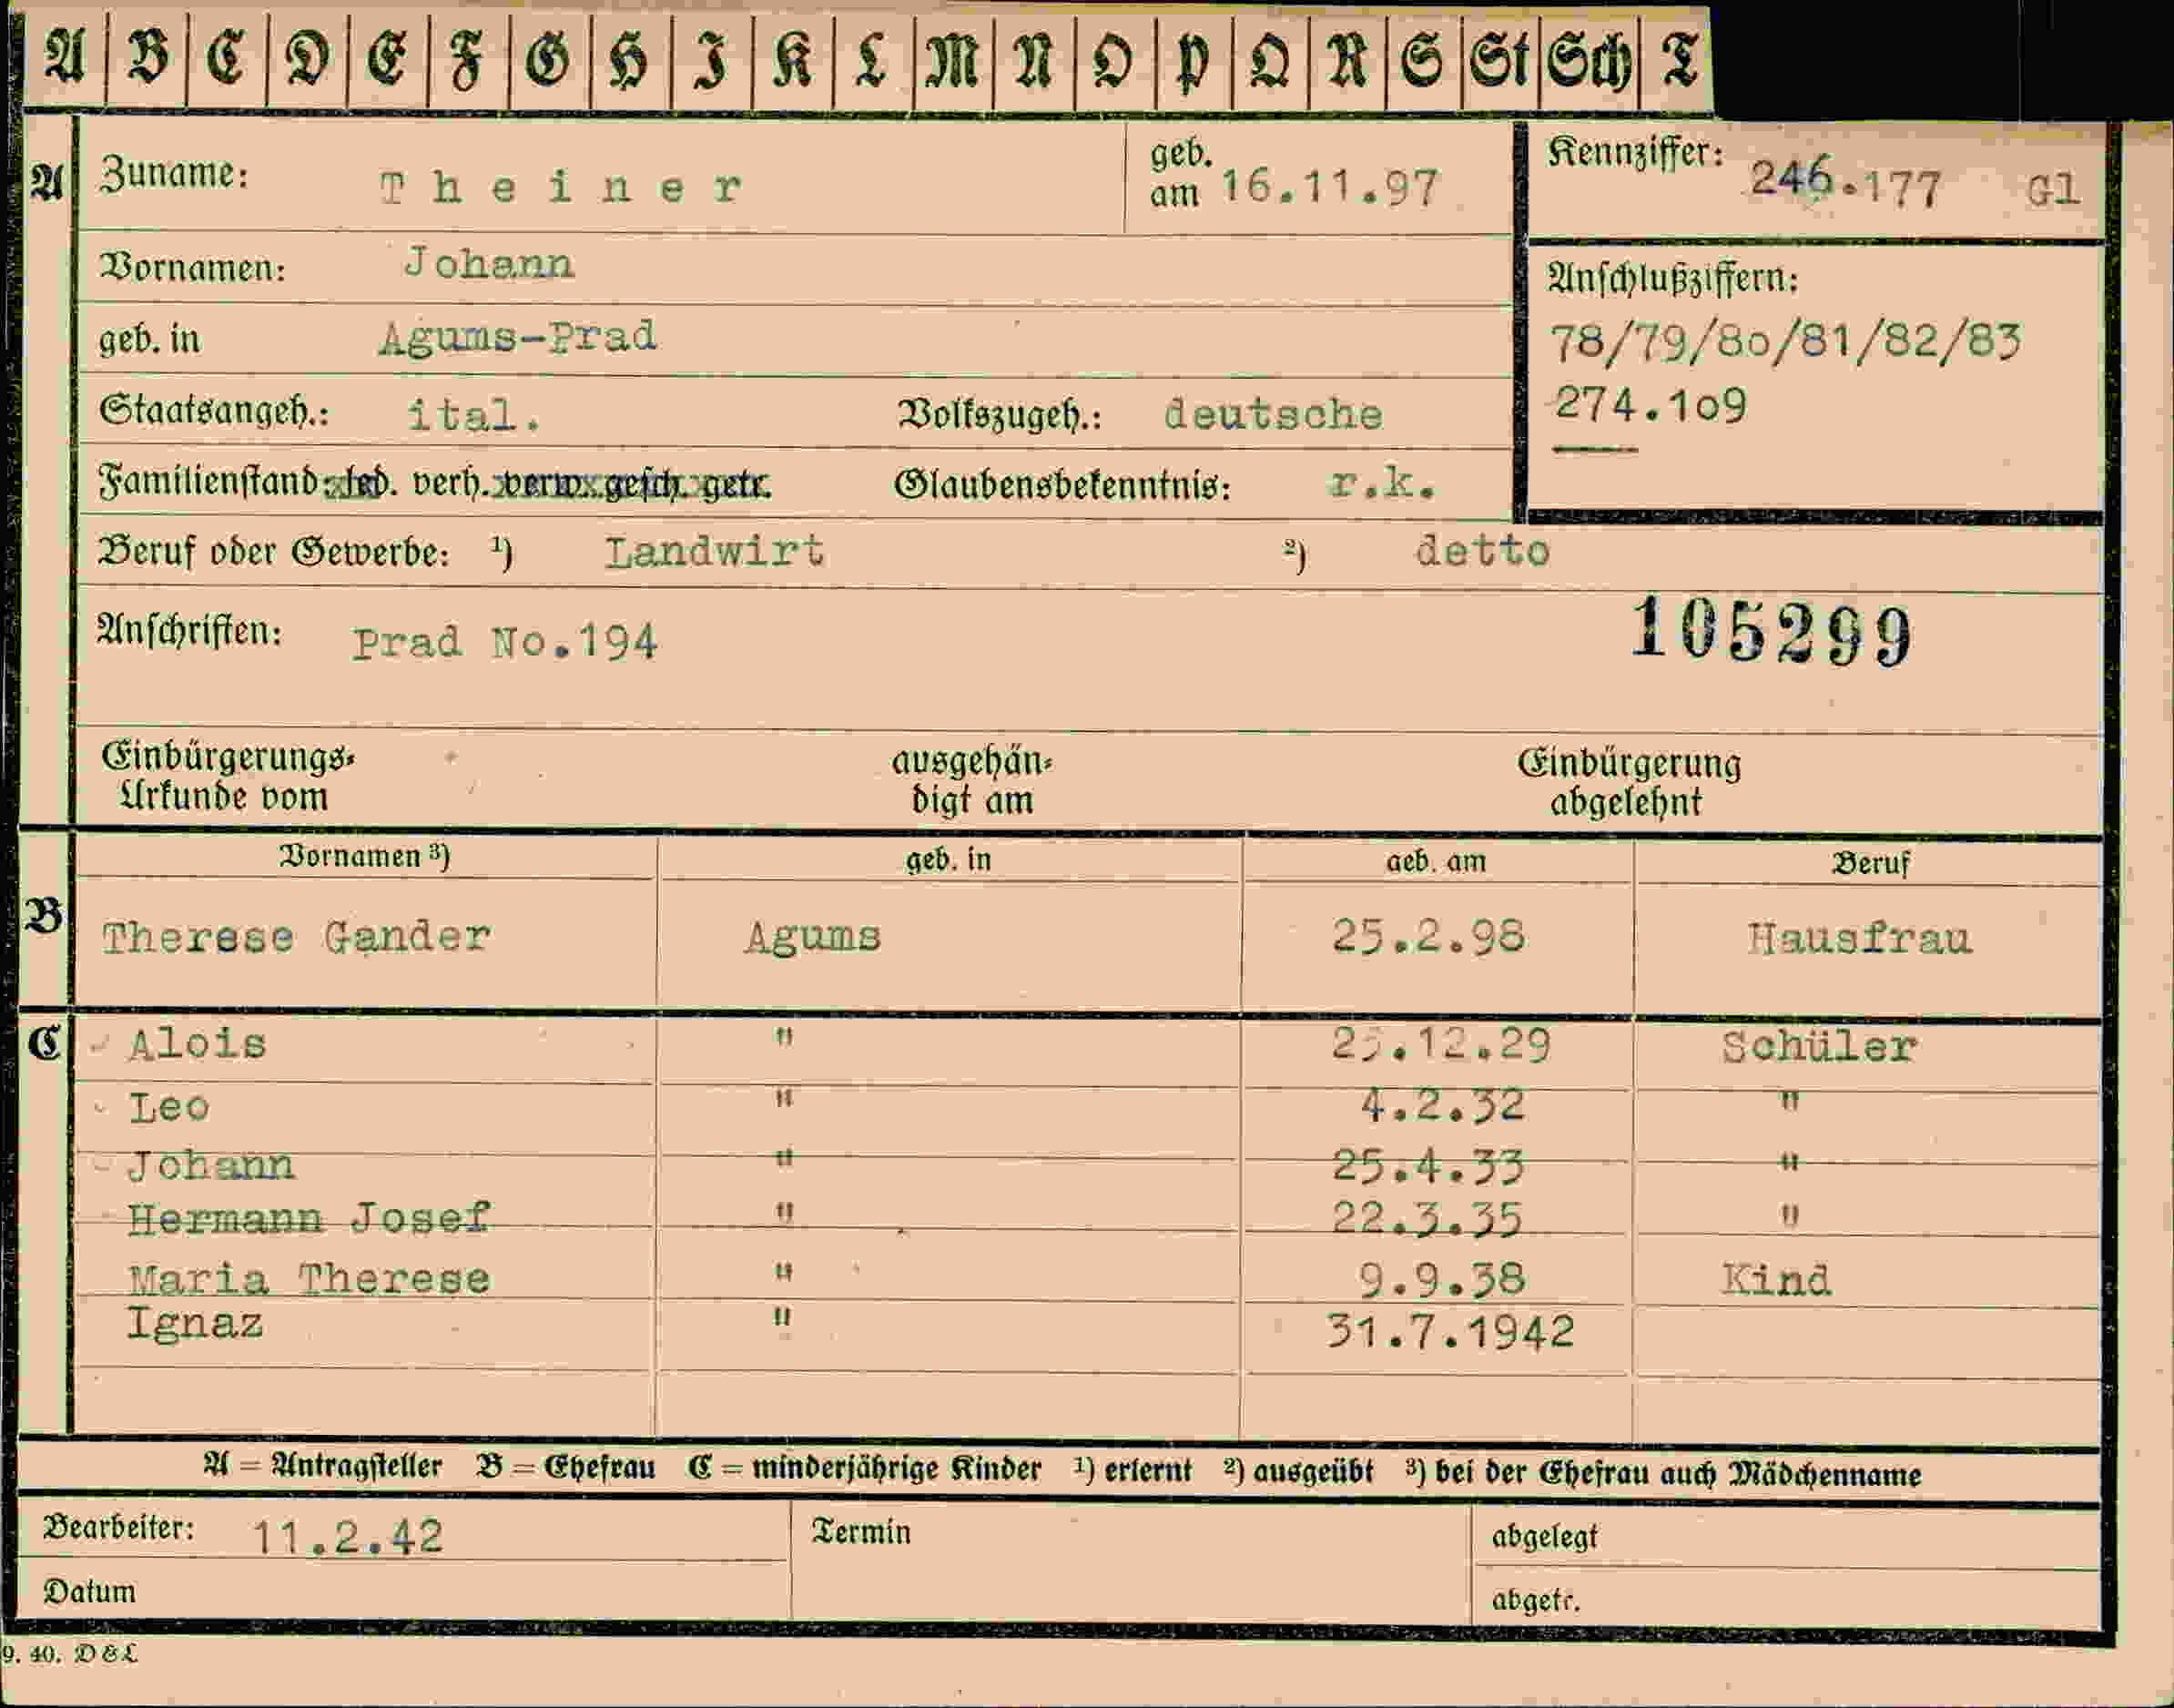 A B C D E F G H I K L M N O P Q R S St Sch T
A Zuname: Theiner geb. am 16.11.97 Kennziffer: 246.177 Gl
Vornamen: Johann
geb. in Agums-Prad
Anschlußziffern:
78/79/80/81/82/83
274.109
Staatsangeh.: ital. Volkszugeh.: deutsche
Familienstand: led. verh. verw. gesch. getr. Glaubensbekenntnis: r.k.
Beruf oder Gewerbe: ¹) Landwirt ²) detto
Anschriften: Prad No.194 105299
Einbürgerungs- ausgehän- Einbürgerung
Urkunde vom digt am abgelehnt
Vornamen ³) geb. in geb. am Beruf
B Therese Gander Agums 25.2.98 Hausfrau
C Alois " .12.29 Schüler
Leo " 4.2.32 "
Johann " 25.4.33 "
Hermann Josef " 22.3.35 "
Maria Therese " 9.9.38 Kind
Ignaz " 31.7.1942
A = Antragsteller B = Ehefrau C = minderjährige Kinder ¹) erlernt ²) ausgeübt ³) bei der Ehefrau auch Mädchenname
Bearbeiter: 11.2.42 Termin abgelegt
Datum abgetr.
9. 40. D & L